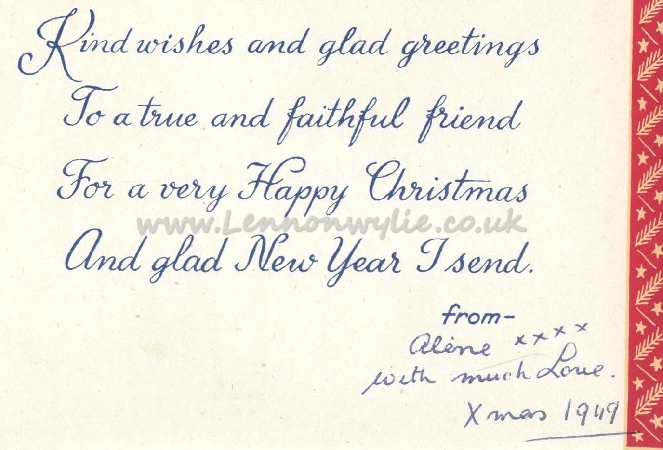 Kind wishes and glad greetings
To a true and faithful friend
For a very Happy Christmas
www.Lennonwylie.co.uk
And glad New Year I send.
from-
Alène xxxx
with much Love.
Xmas 1949